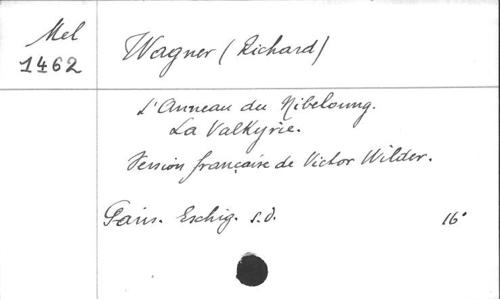 Mel
1462
Wagner (Richard)
L'Anneau du Nibeloung.
La Valkyrie.
Version française de Victor Wilder.
Paris. Eschig. s.d. 16°